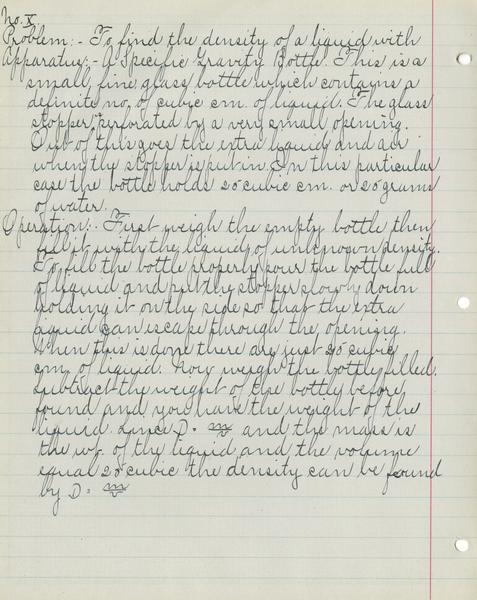 No. X
Problem:- To find the density of a liquid with
Apparatus:- A Specific Gravity Bottle. This is a
small, fine glass bottle which contains a
definite no. of cubic cm. of liquid. The glass
stopper perforated by a very small opening.
Out of this goes the extra liquid and air
when the stopper is put in. In this particular
case the bottle holds 25 cubic cm. or 25 grams
of water.
Operation:- First weigh the empty bottle then
fill it with the liquid of unknown density.
To fill the bottle properly pour the bottle full
of liquid and put thy stopper slowly down
holding it on the side so that the extra
liquid can escape through the opening.
When this is done there are just 25 cubic
cm. of liquid. Now weigh the bottle filled.
Subtract the weight of the bottle before
found and you have the weight of the
liquid. Since D = m/v and the mass is
the wt. of the liquid and the volume
equal 25 cubic the density can be found
by D = m/v